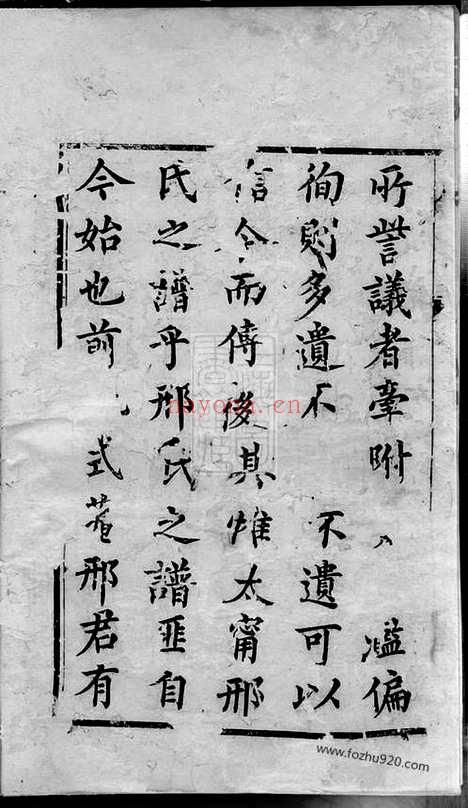 所訾議者牽附 濫偏
徇則多遺不 不遺可以
信今而傳後其惟太甯邢
氏之譜乎邢氏之譜匪自
今始也前 式菴邢君有
nayona.cn
www.fozhu920.com